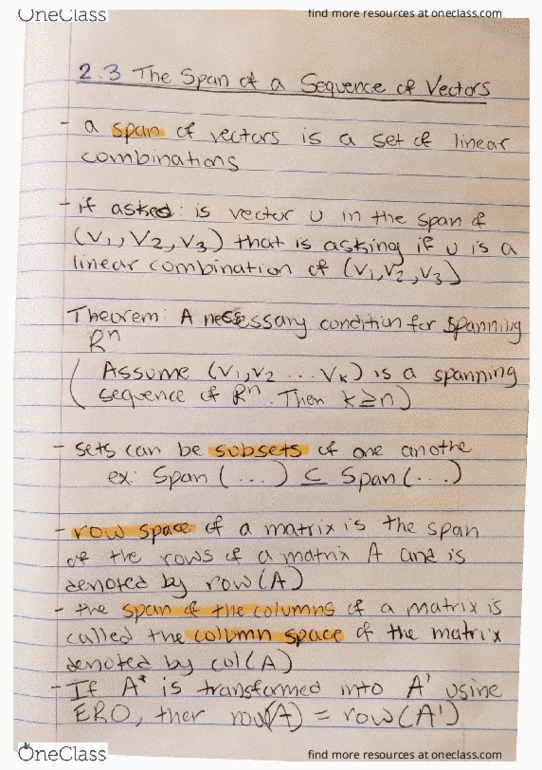 OneClass
find more resources at oneclass.com
2.3 The Span of a Sequence of Vectors
- a span of vectors is a set of linear
combinations
- if asked: is vector u in the span of
(V1, V2, V3) that is asking if u is a
linear combination of (V1, V2, V3)
Theorem: A necessary condition for spanning
Rⁿ
(Assume (V1, V2 ... Vk) is a spanning
sequence of Rⁿ. Then k≥n)
- sets can be subsets of one anothe
ex: Span (...) ⊆ Span (...)
- row space of a matrix is the span
of the rows of a matrix A and is
denoted by row(A)
- the span of the columns of a matrix is
called the column space of the matrix
denoted by col(A)
- If A is transformed into A' usine
ERO, then row(A) = row(A')
OneClass
find more resources at oneclass.com